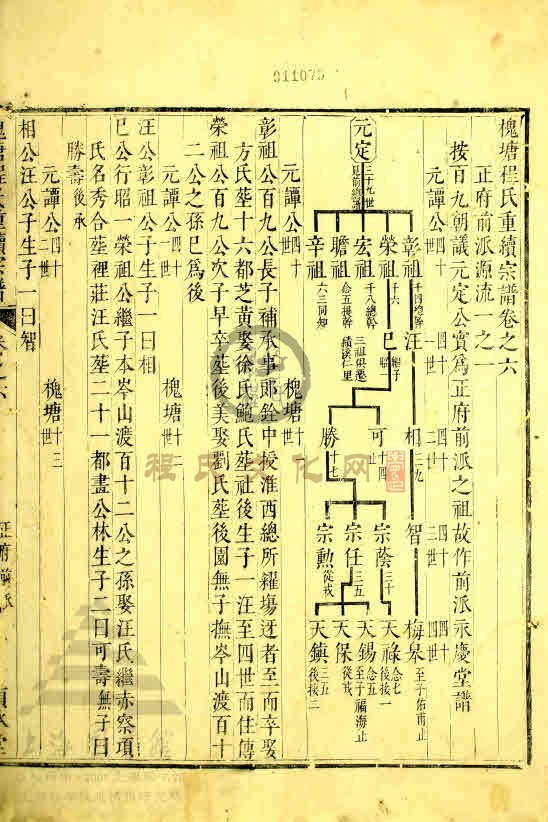 911075
槐塘程氏重續宗譜卷之六
正府前派源流一之一
按百九朝議元定公實爲正府前派之祖故作前派永慶堂譜
元譚公四十世
四十一世
四十二世
四十三世
四十四世
元定 三十九世見前總譜
彰祖 千四總幹
汪
相 三九
智
梅皋 至子佑甫止
榮祖 千六
巳 昭一繼子
可 十四止
勝 十七
宗蔭 三十
宗任 三五
宗勲 從戎
天祿 念七後接一
天錫 念五至子福海止
天保 從戎
天鎮 三五後接二
宏祖 千八總幹
三祖俱遷績溪仁里
瞻祖 念五提幹
辛祖 六三同知
元譚公四十世
槐塘十一世
彰祖公百九公長子補承事郎銓中授淮西總所糴塲迓者至而卒娶
方氏塟十六都芝黃娶徐氏鮑氏塟社後生子一汪至四世而住傳
榮祖公百九公次子早卒塟後美娶劉氏塟後園無子撫岑山渡百十
二公之孫巳爲後
元譚公四十一世
槐塘十二世
汪公彰祖公子生子一曰相
巳公行昭一榮祖公繼子本岑山渡百十二公之孫娶汪氏繼赤察項
氏名秀合塟裡莊汪氏塟二十一都畫公林生子二曰可壽無子曰
勝壽後承
元譚公四十二世
槐塘十三世
相公汪公子生子一曰智
槐塘程氏重續宗譜
卷之六
正府前派
程氏文化网